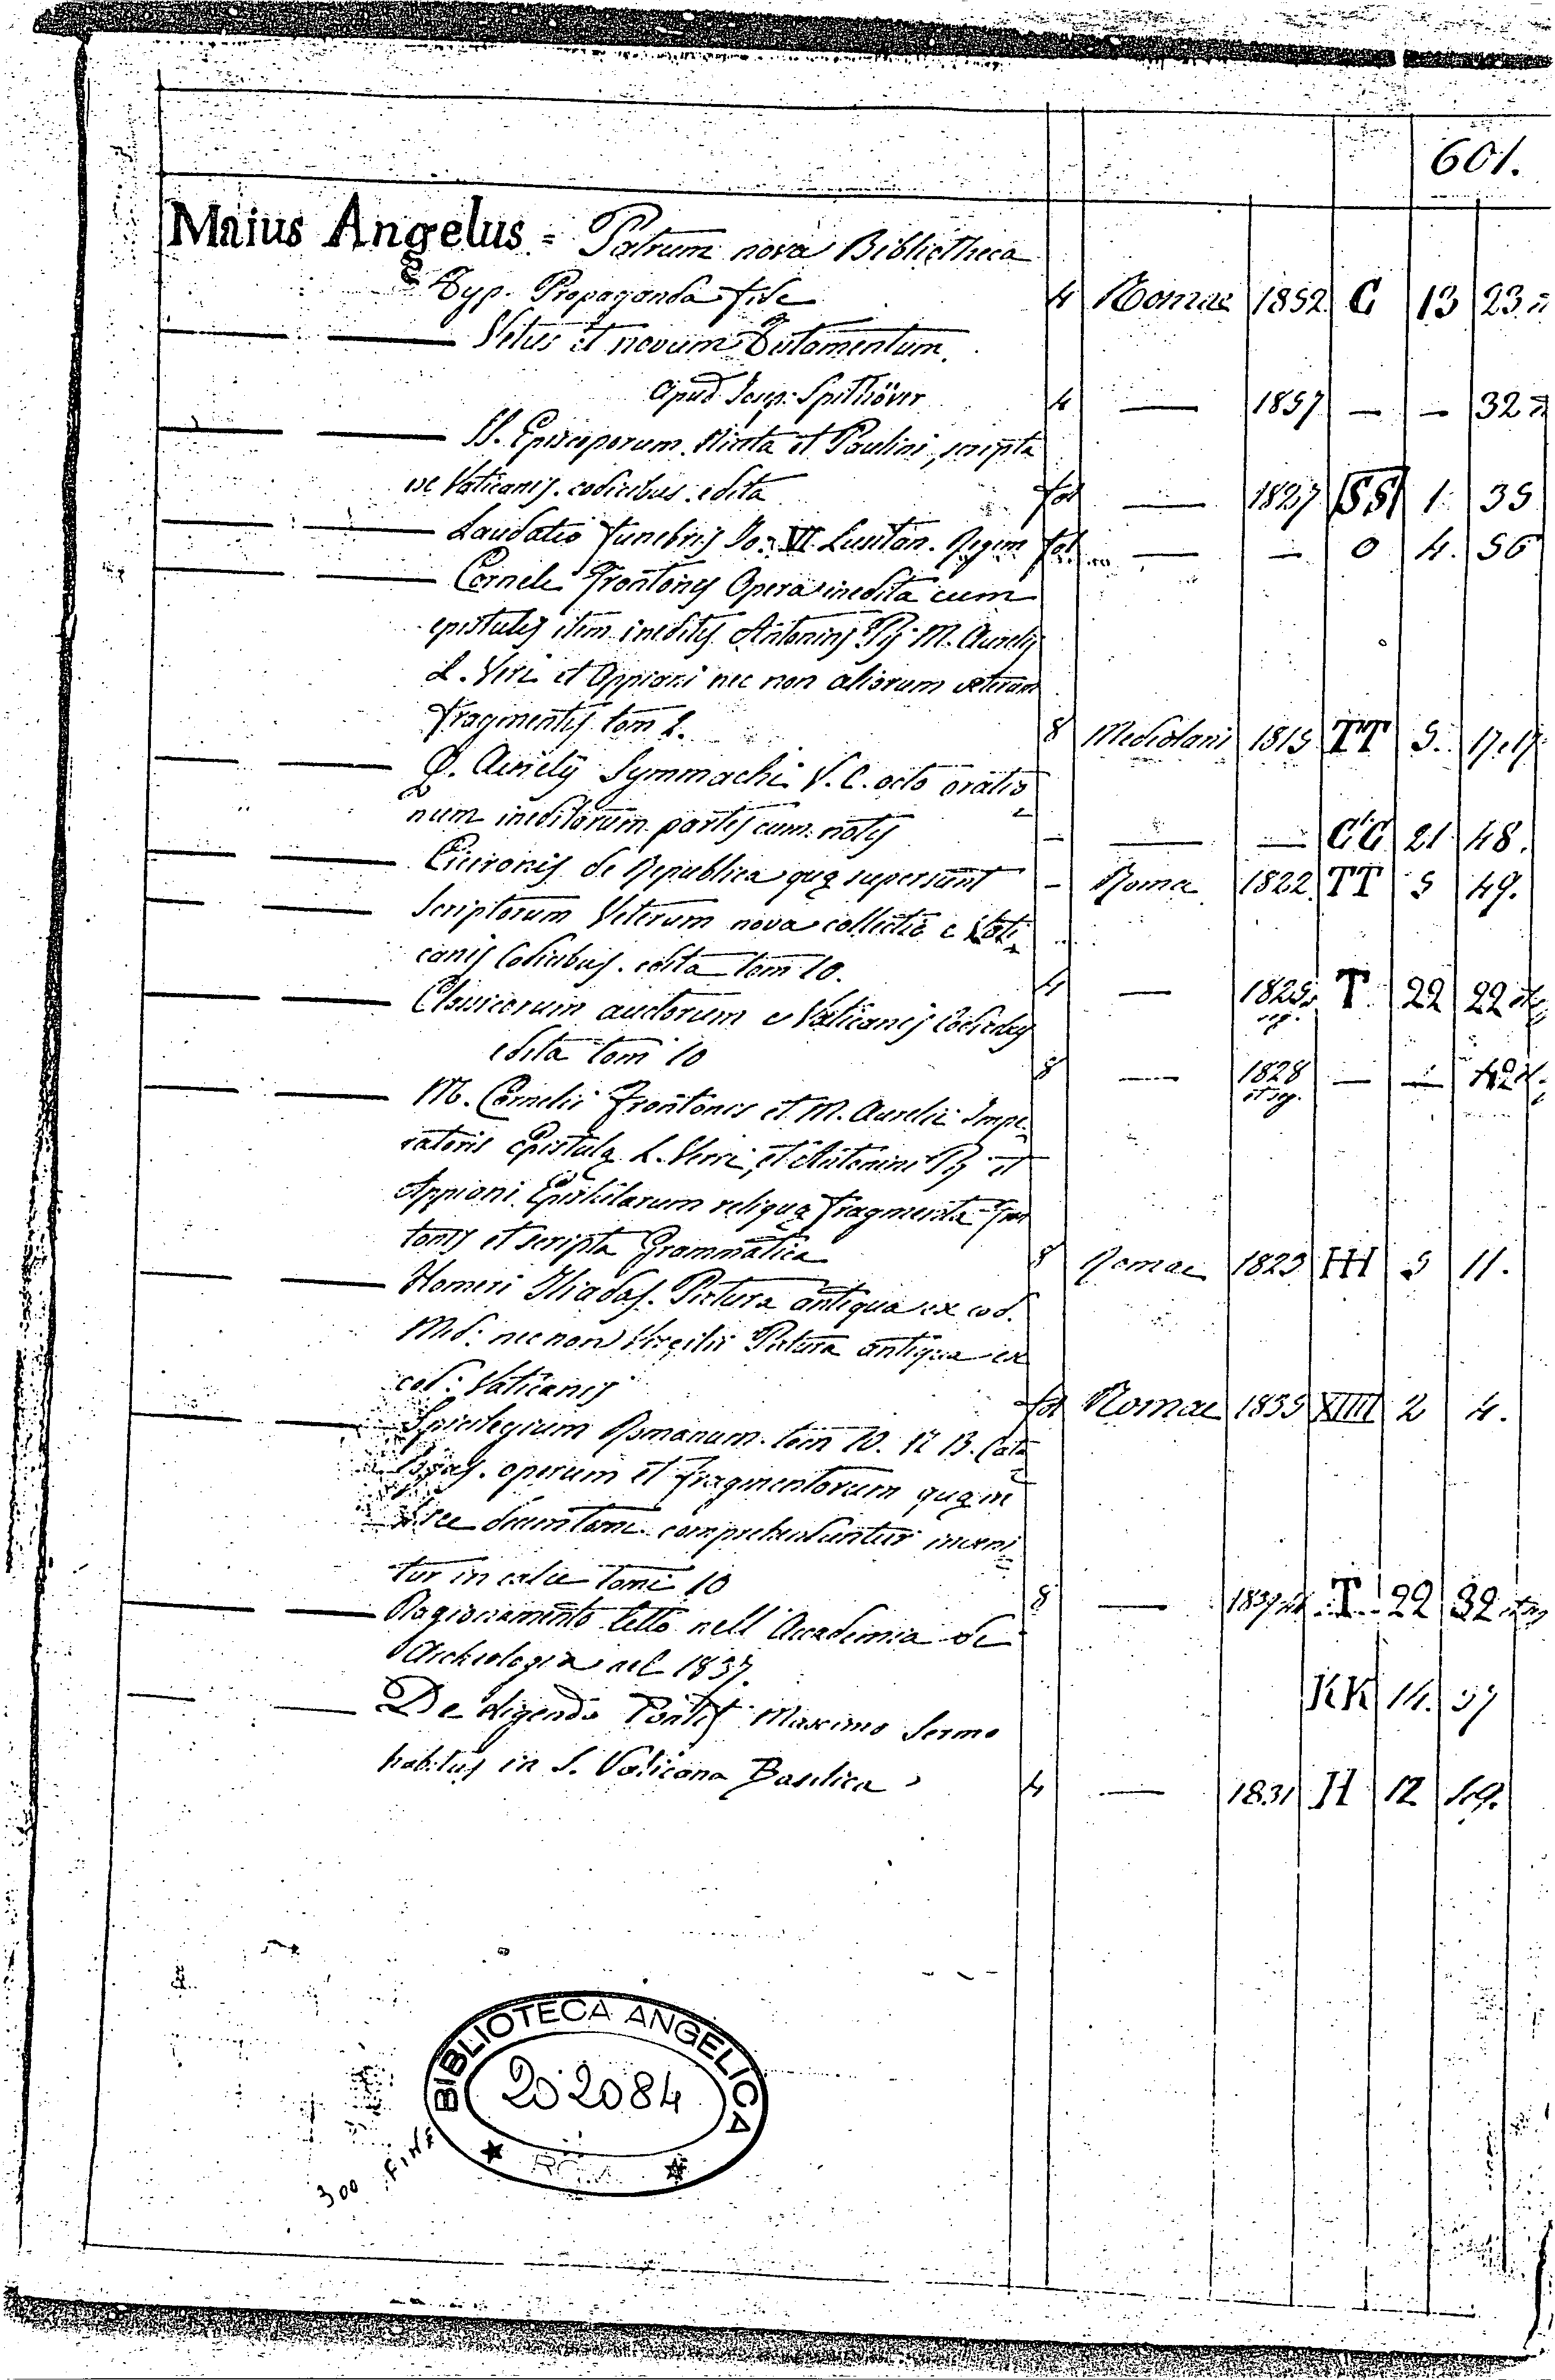 601.
Maius Angelus = Patrum nova Bibliotheca
Typ. Propaganda fide 4 Romae 1852 C 13 23
Vetus et novum Testamentum.
apud Josep: Spithöver 4 — 1857 — — 32
SS. Episcoporum Niceta et Paulini, scripta
ex Vaticanis codicibus edita fol — 1827 SS 1 35
Laudatio funebris Jo: VI Lusitan. Regem fol — — O 4. 56
Corneli Frontonis Opera inedita cum
epistulis item ineditis Antonini Pij M. Aurelij
L. Veri et Appiani nec non aliorum veterum
fragmentis tom 2. 8 Mediolani 1815 TT 5. 17.17
Q. Aurelij Symmachi V. C. octo oratio
num ineditarum partes cum notis — — — CC 21 48.
Ciceronis de Republica quę supersunt — Roma 1822 TT 5 49.
Scriptorum Veterum nova collectio e Vati
canis Codicibus edita tom 10. 4 — 1825 T 22 22
seq.
Classicorum auctorum e Vaticanis Codicibus
edita tom 10 8 — 1828 — —
et seq.
M. Cornelii Frontonis et M. Aurelii Impe
ratoris Epistulę L. Veri, et Antonini Pij et
Appiani Epistularum reliquę fragmenta Fron
tonis et scripta Grammatica 8 Romae 1823 HH 5 11.
Homeri Iliados Pictura antiqua ex cod.
Med: nec non Virgilii Pictura antiqua ex
cod: Vaticanis fol Romae 1835 XIIII 2 4.
Spicilegium Romanum tom 10. 12 B. Cata
logus operum et fragmentorum quę in
hsce decem tom comprehenduntur inveni
tur in calce tomi 10 8 — 1839 T 22 32
Ragionamento letto nell' Accademia di
Archeologia nel 1837. KK 14. 37
De eligendo Pontif Maximo Sermo
habitus in S. Vaticana Basilica 4 — 1831 H 12
BIBLIOTECA ANGELICA
202084
ROMA
300 FINE